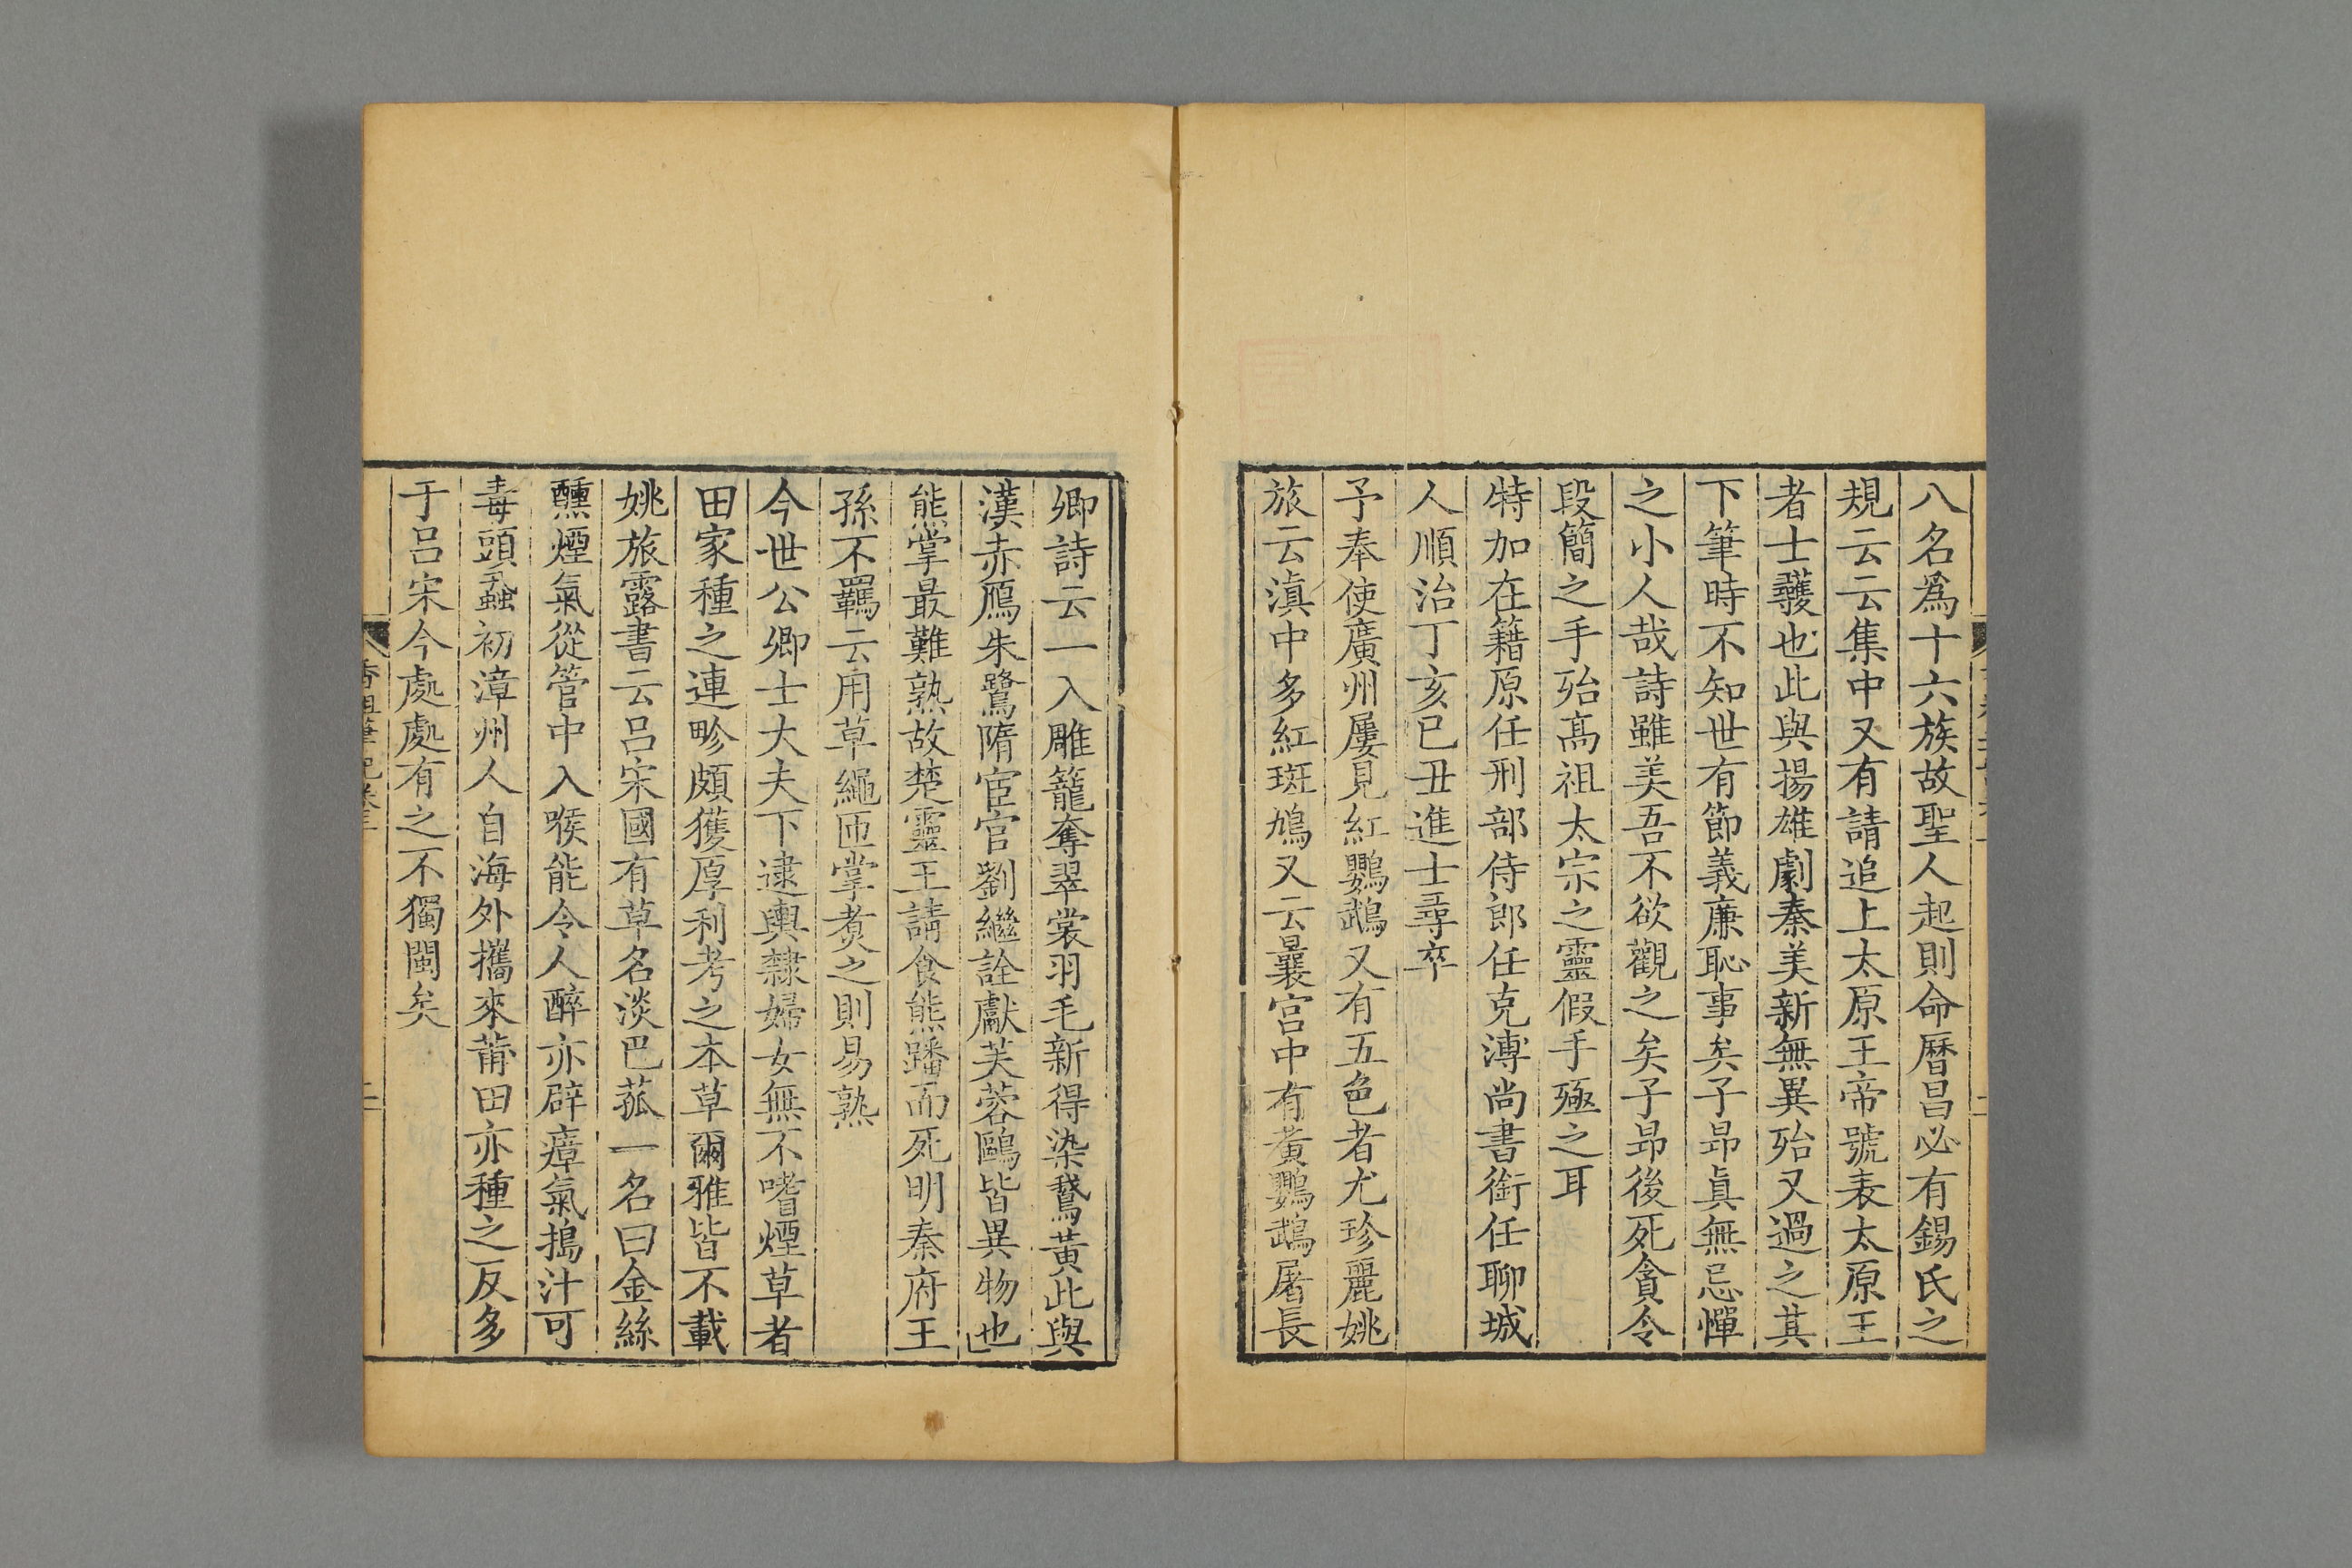 八名爲十六族故聖人起則命曆昌必有錫氏之
規云云集中又有請追上太原王帝號表太原王
者士彠也此與揚雄劇秦美新無異殆又過之其
下筆時不知世有節義亷恥事矣子昻眞無忌憚
之小人哉詩雖美吾不欲觀之矣子昻後死貪令
段簡之手殆髙祖太宗之靈假手殛之耳
特加在籍原任刑部侍郎任克溥尚書銜任聊城
人順治丁亥巳丑進士尋卒
予奉使廣州屢見紅鸚鵡又有五色者尤珍麗姚
旅云滇中多紅斑鳩又云曩宫中有黃鸚鵡屠長
卿詩云一入雕籠奪翠裳羽毛新得染鵞黄此與
漢赤鴈朱鷺隋宦官劉繼詮獻芙蓉鷗皆異物也
熊掌最難熟故楚靈王請食熊蹯而死明秦府王
孫不羈云用草繩匝掌煑之則易熟
今世公卿士大夫下逮輿隸婦女無不嗜煙草者
田家種之連畛頗獲厚利考之本草爾雅皆不載
姚旅露書云呂宋國有草名淡巴菰一名曰金絲
醺煙氣從管中入喉能令人醉亦辟瘴氣搗汁可
毒頭蝨初漳州人自海外攜來莆田亦種之反多
于呂宋今處處有之不獨閩矣
香祖筆記卷三